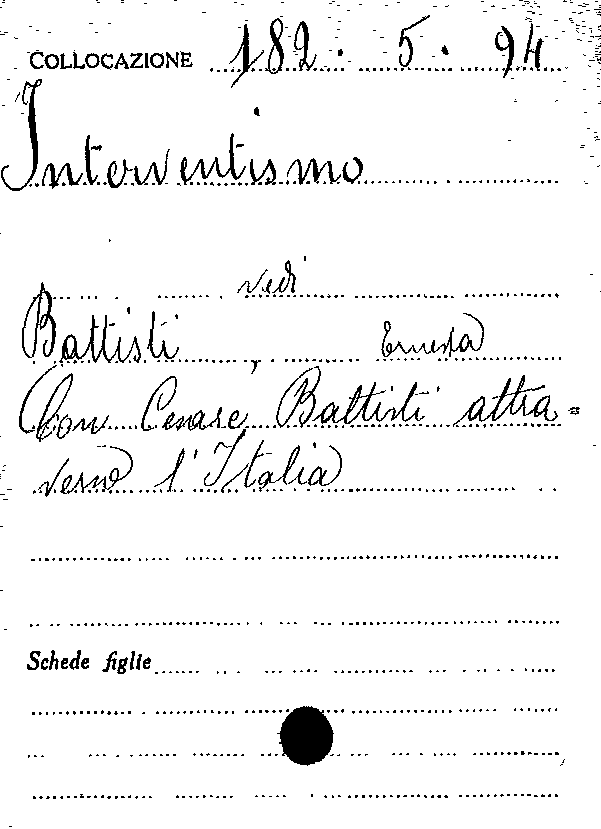 COLLOCAZIONE 182. 5. 94
Interventismo
vedi
Battisti, Ernesta
Con Cesare Battisti attra=
verso l'Italia
Schede figlie